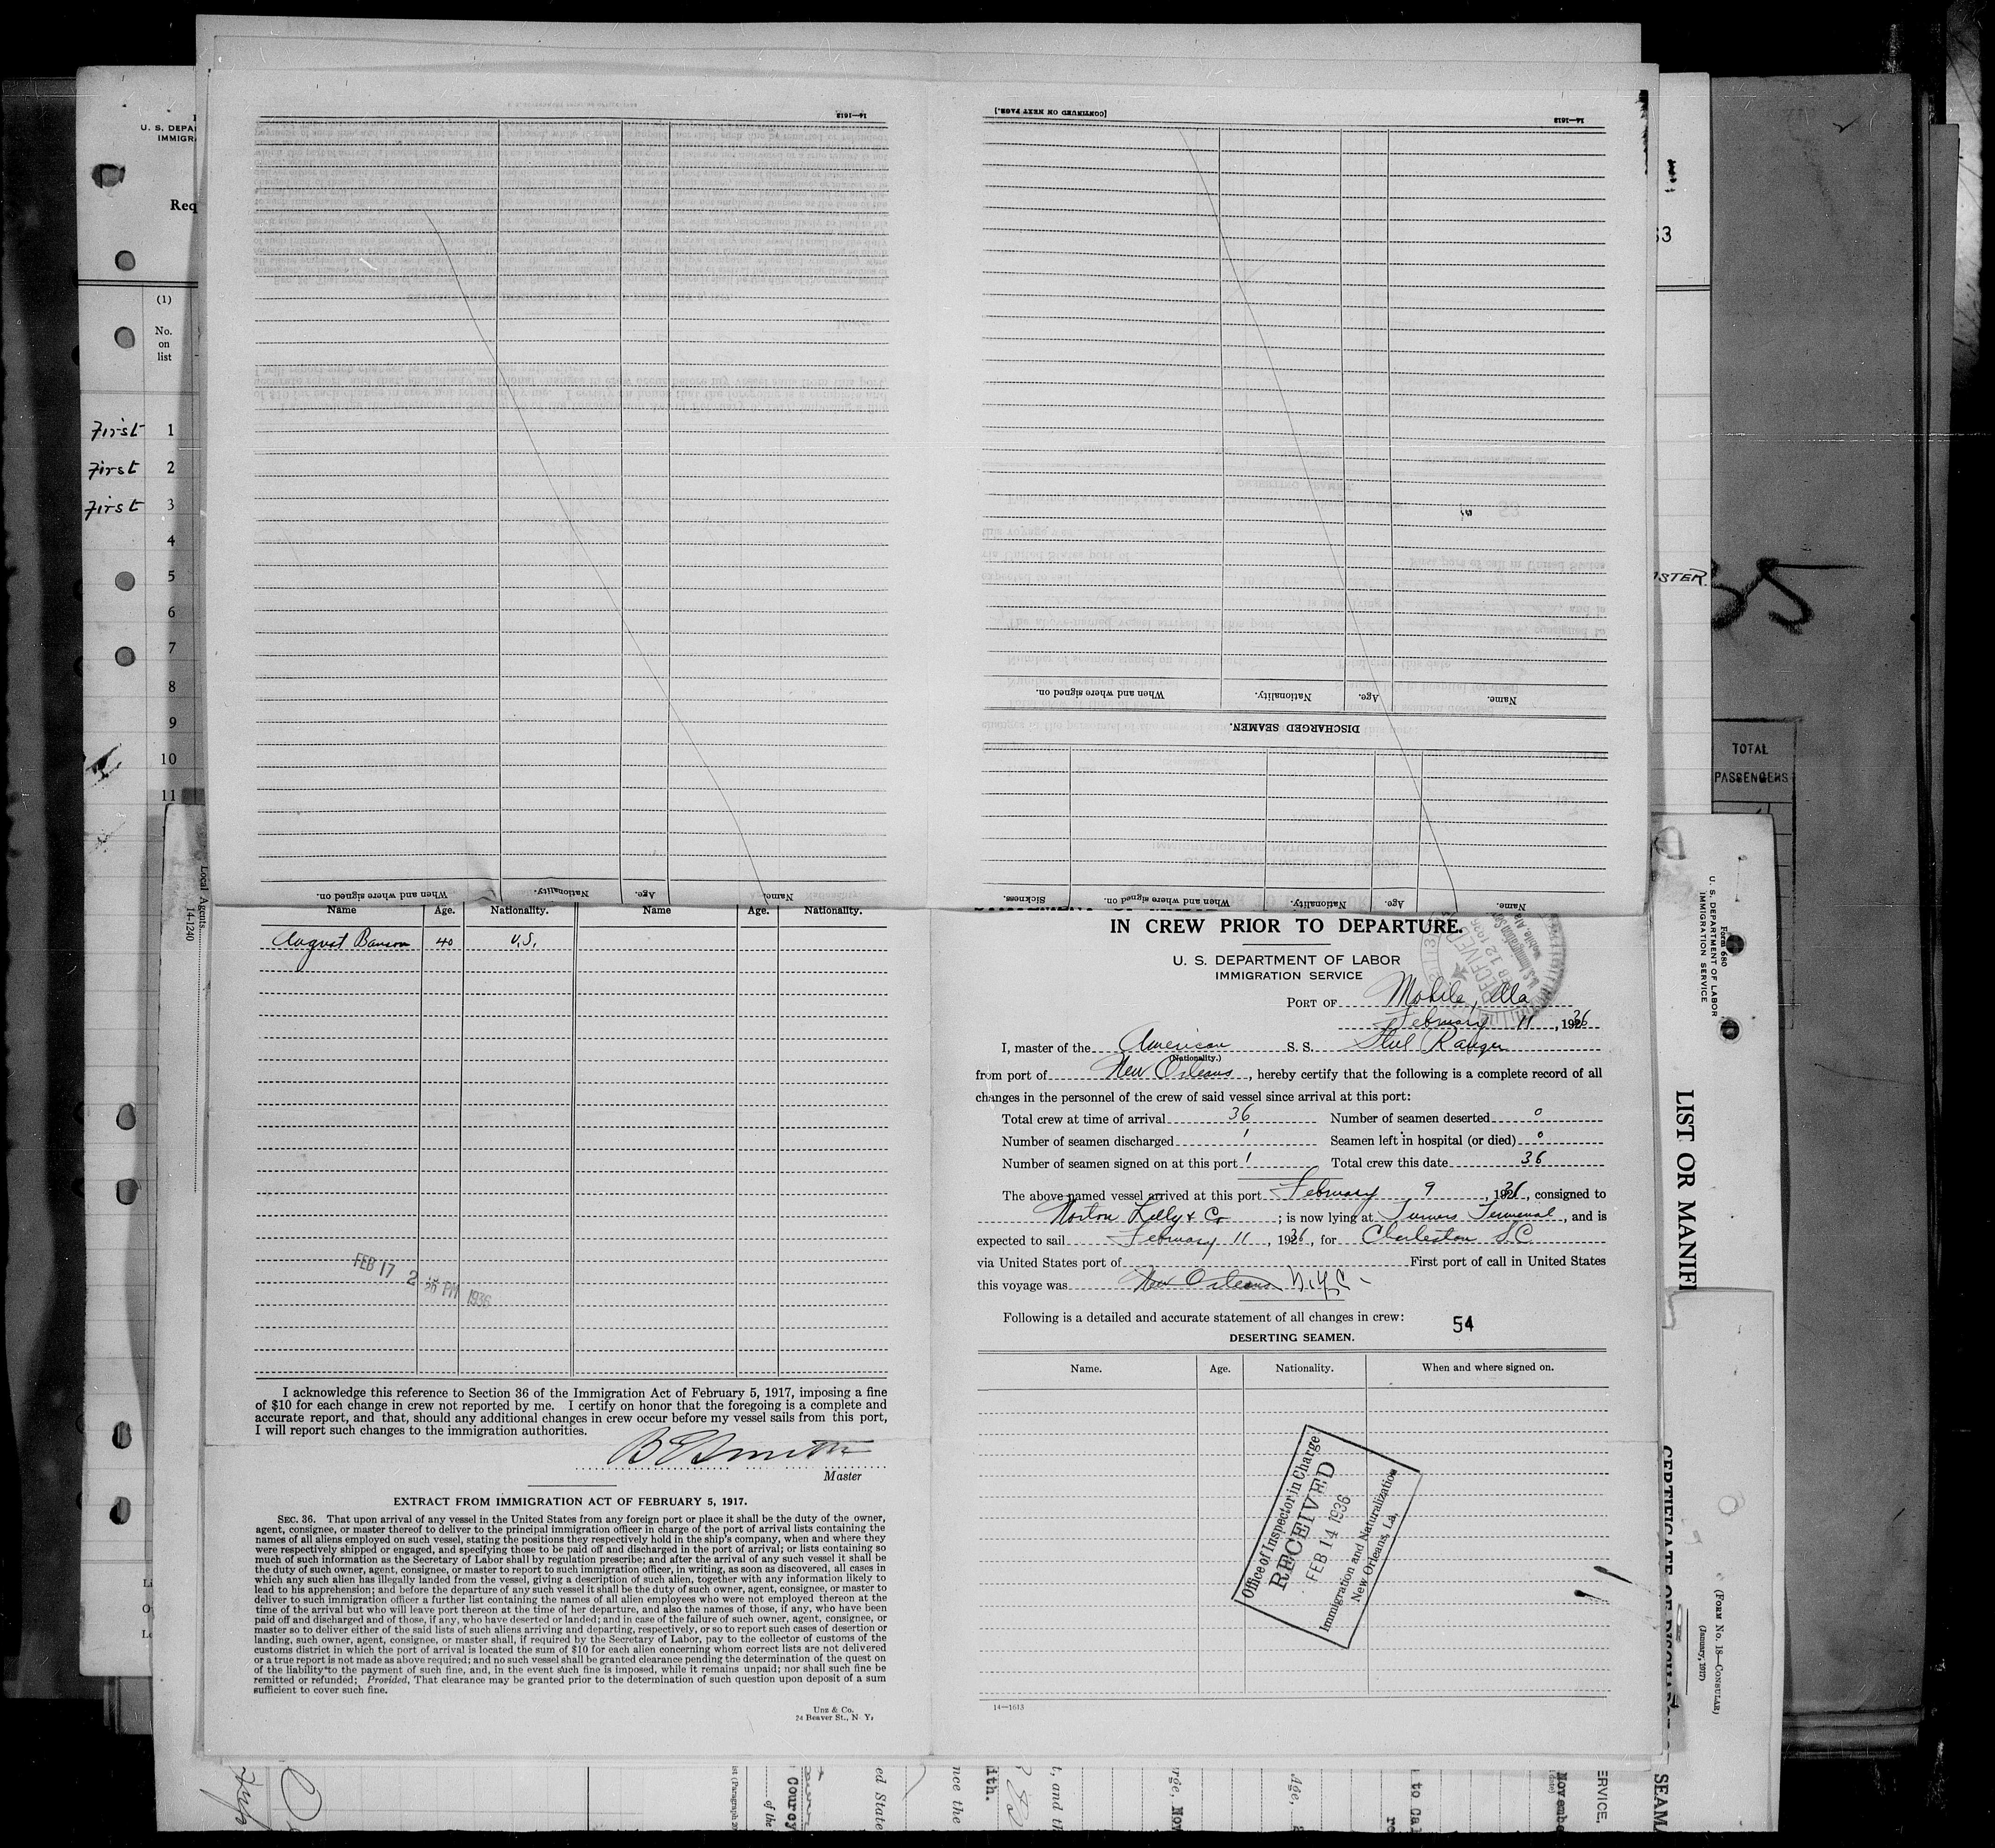 U. S. DEPA
IMMIGR
Req
(1)
No.
on
list
First 1
First 2
First 3
4
5
6
7
8
9
10
11
Local Agents
14-1240
14—1613
When and where signed on.
Nationality.
Age.
Name.
[CONTINUED ON NEXT PAGE.]
14—1613
When and where signed on.
Nationality.
Age.
Name.
DISCHARGED SEAMEN.
Sickness.
When and where signed on.
Nationality.
Age.
Name.
Name Age. Nationality. Name Age. Nationality.
August 40 U.S.
FEB 17 2 PM 1936
I acknowledge this reference to Section 36 of the Immigration Act of February 5, 1917, imposing a fine
of $10 for each change in crew not reported by me. I certify on honor that the foregoing is a complete and
accurate report, and that, should any additional changes in crew occur before my vessel sails from this port,
I will report such changes to the immigration authorities.
B E Smith
Master
EXTRACT FROM IMMIGRATION ACT OF FEBRUARY 5, 1917.
SEC. 36. That upon arrival of any vessel in the United States from any foreign port or place it shall be the duty of the owner,
agent, consignee, or master thereof to deliver to the principal immigration officer in charge of the port of arrival lists containing the
names of all aliens employed on such vessel, stating the positions they respectively hold in the ship's company, when and where they
were respectively shipped or engaged, and specifying those to be paid off and discharged in the port of arrival; or lists containing so
much of such information as the Secretary of Labor shall by regulation prescribe; and after the arrival of any such vessel it shall be
the duty of such owner, agent, consignee, or master to report to such immigration officer, in writing, as soon as discovered, all cases in
which any such alien has illegally landed from the vessel, giving a description of such alien, together with any information likely to
lead to his apprehension; and before the departure of any such vessel it shall be the duty of such owner, agent, consignee, or master to
deliver to such immigration officer a further list containing the names of all alien employees who were not employed thereon at the
time of the arrival but who will leave port thereon at the time of her departure, and also the names of those, if any, who have been
paid off and discharged and of those, if any, who have deserted or landed; and in case of the failure of such owner, agent, consignee, or
master so to deliver either of the said lists of such aliens arriving and departing, respectively, or so to report such cases of desertion or
landing, such owner, agent, consignee, or master shall, if required by the Secretary of Labor, pay to the collector of customs of the
customs district in which the port of arrival is located the sum of $10 for each alien concerning whom correct lists are not delivered
or a true report is not made as above required; and no such vessel shall be granted clearance pending the determination of the quest on
of the liability to the payment of such fine, and, in the event such fine is imposed, while it remains unpaid; nor shall such fine be
remitted or refunded; Provided, That clearance may be granted prior to the determination of such question upon deposit of a sum
sufficient to cover such fine.
Unz & Co.
24 Beaver St., N Y.
IN CREW PRIOR TO DEPARTURE.
U. S. DEPARTMENT OF LABOR
IMMIGRATION SERVICE
RECEIVED
FEB 12 1936
U.S. Immigration
Mobile, Ala
PORT OF Mobile, Ala
February 11, 1936
I, master of the American S. S. Steel Ranger
(Nationality.)
from port of New Orleans, hereby certify that the following is a complete record of all
changes in the personnel of the crew of said vessel since arrival at this port:
Total crew at time of arrival 36 Number of seamen deserted 0
Number of seamen discharged 1 Seamen left in hospital (or died) 0
Number of seamen signed on at this port 1 Total crew this date 36
The above named vessel arrived at this port February 9, 1936, consigned to
Norton Lilly & Co; is now lying at Turners Terminal, and is
expected to sail February 11, 1936, for Charleston S.C.
via United States port of First port of call in United States
this voyage was New Orleans N.Y.C
Following is a detailed and accurate statement of all changes in crew: 54
DESERTING SEAMEN.
Name. Age. Nationality. When and where signed on.
Office of Inspector in Charge
RECEIVED
FEB 14 1936
Immigration and Naturalization
New Orleans, La.
14—1613
33
STER.
35
TOTAL
PASSENGERS
Form 680
U. S. DEPARTMENT OF LABOR
IMMIGRATION SERVICE
LIST OR MANIF
CERTIFICATE OF DISCHA
(FORM No. 18—CONSULAR)
(January, 1917)
of the
Conroy
ed State
nce the
ith.
t, and th
rge, Nov
Age,
to Cal
Novembe
(date)
ERVICE.
SEAM